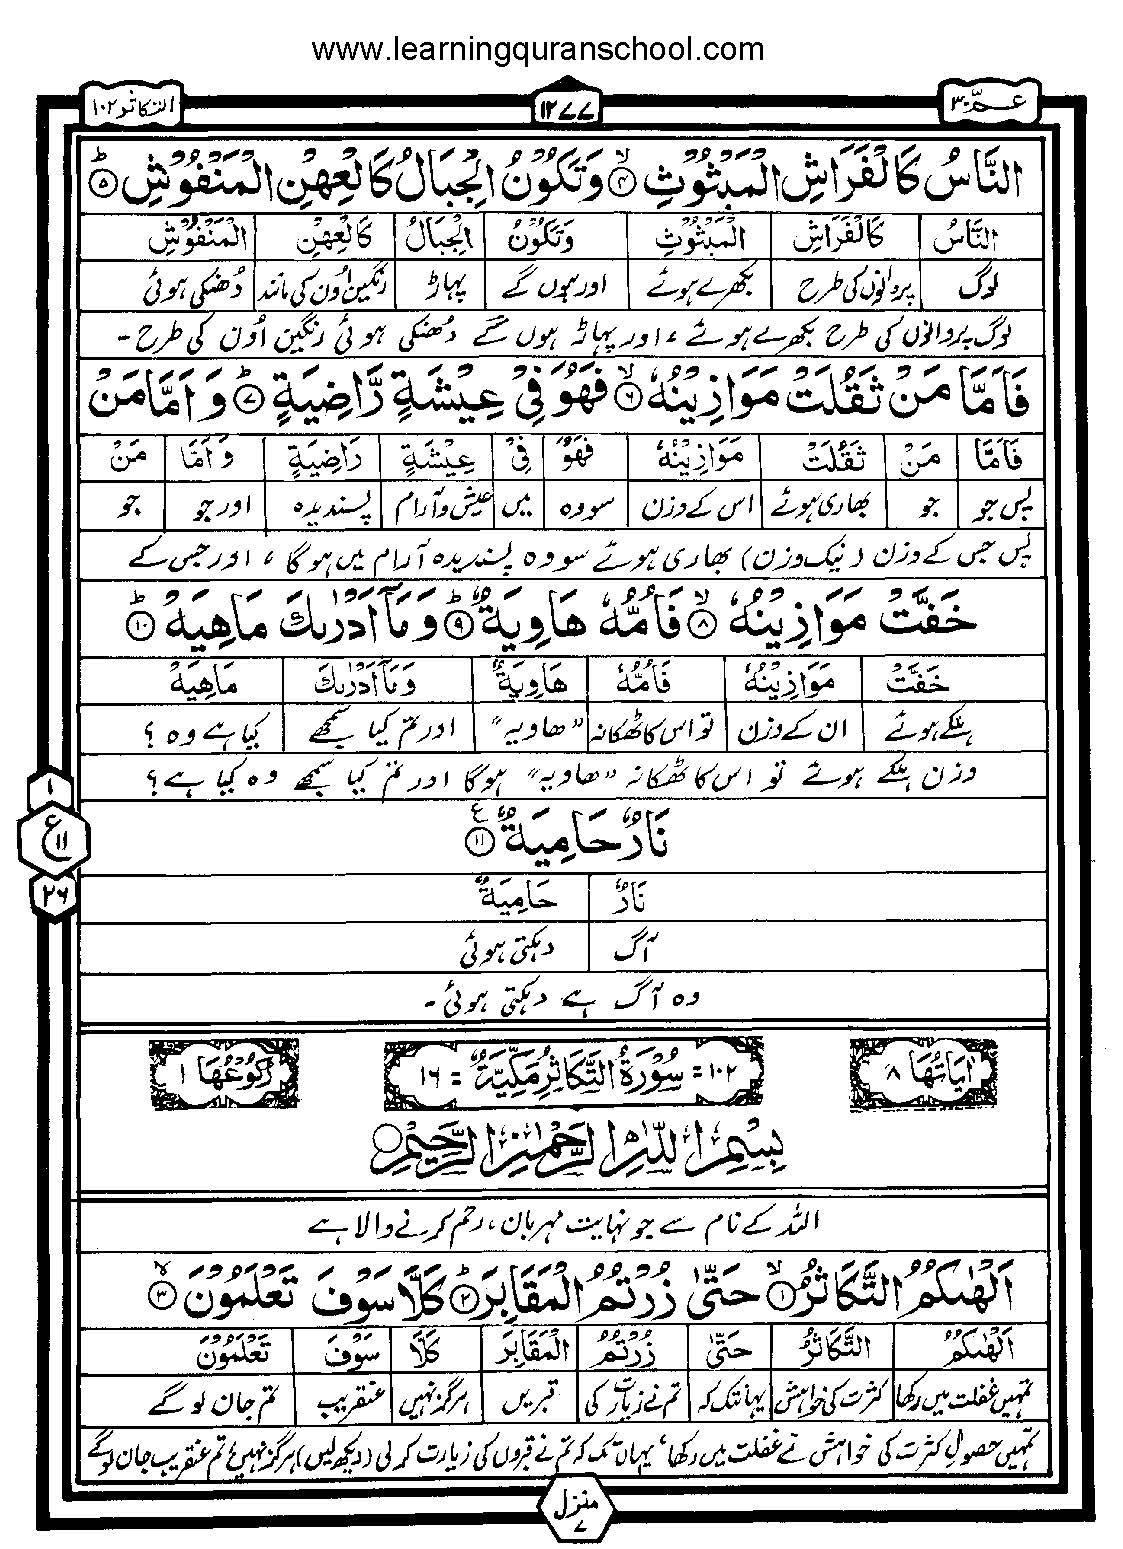 www.learningquranschool.com
عمّ ۳۰
۱۲۷۷
التکاثر ۱۰۲
النَّاسُ كَالْفَرَاشِ الْمَبْثُوْثِ ۙ﴿۴﴾ وَتَكُوْنُ الْجِبَالُ كَالْعِهْنِ الْمَنْفُوْشِ ؕ﴿۵﴾
النَّاسُ كَالْفَرَاشِ الْمَبْثُوْثِ وَتَكُوْنُ الْجِبَالُ كَالْعِهْنِ الْمَنْفُوْشِ
لوگ پروانوں کی طرح بکھرے ہوئے اور ہوں گے پہاڑ رنگین اُون کی مانند دُھنکی ہوئی
لوگ پروانوں کی طرح بکھرے ہوئے، اور پہاڑ ہوں گے دُھنکی ہوئی رنگین اُون کی طرح۔
فَاَمَّا مَنْ ثَقُلَتْ مَوَازِيْنُهٗ ۙ﴿۶﴾ فَهُوَ فِيْ عِيْشَةٍ رَّاضِيَةٍ ؕ﴿۷﴾ وَاَمَّا مَنْ
فَاَمَّا مَنْ ثَقُلَتْ مَوَازِيْنُهٗ فَهُوَ فِيْ عِيْشَةٍ رَاضِيَةٍ وَاَمَّا مَنْ
پس جو جو بھاری ہوئے اس کے وزن سو وہ میں عیش و آرام پسندیدہ اور جو جو
پس جس کے وزن (نیک وزن) بھاری ہوئے سو وہ پسندیدہ آرام میں ہوگا، اور جس کے
خَفَّتْ مَوَازِيْنُهٗ ۙ﴿۸﴾ فَاُمُّهٗ هَاوِيَةٌ ؕ﴿۹﴾ وَمَاۤ اَدْرٰىكَ مَاهِيَهْ ؕ﴿۱۰﴾
خَفَّتْ مَوَازِيْنُهٗ فَاُمُّهٗ هَاوِيَةٌ وَمَاۤ اَدْرٰىكَ مَاهِيَهْ
ہلکے ہوئے ان کے وزن تو اس کا ٹھکانہ "ھاویہ" اور تم کیا سمجھے کیا ہے وہ؟
وزن ہلکے ہوئے تو اس کا ٹھکانہ "ھاویہ" ہوگا اور تم کیا سمجھے وہ کیا ہے؟
نَارٌ حَامِيَةٌ ﴿۱۱﴾ ع
۱
ع ۱۱
۲۶
نَارٌ حَامِيَةٌ
آگ دہکتی ہوئی
وہ آگ ہے دہکتی ہوئی۔
اٰيَاتُهَا ۸
۱۰۲= سُوْرَةُ التَّكَاثُرِ مَكِّيَّةٌ =۱۶
رُكُوْعُهَا ۱
بِسْمِ اللّٰهِ الرَّحْمٰنِ الرَّحِيْمِ
اللہ کے نام سے جو نہایت مہربان، رحم کرنے والا ہے
اَلْهٰىكُمُ التَّكَاثُرُ ۙ﴿۱﴾ حَتّٰى زُرْتُمُ الْمَقَابِرَ ؕ﴿۲﴾ كَلَّا سَوْفَ تَعْلَمُوْنَ ۙ﴿۳﴾
اَلْهٰىكُمُ التَّكَاثُرُ حَتّٰى زُرْتُمُ الْمَقَابِرَ كَلَّا سَوْفَ تَعْلَمُوْنَ
تمہیں غفلت میں رکھا کثرت کی خواہش یہانتک کہ تم نے زیارت کی قبریں ہرگز نہیں عنقریب تم جان لوگے
تمہیں حصولِ کثرت کی خواہش نے غفلت میں رکھا، یہاں تک کہ تم نے قبروں کی زیارت کرلی (دیکھ لیں) ہرگز نہیں تم عنقریب جان لوگے
منزل ۷